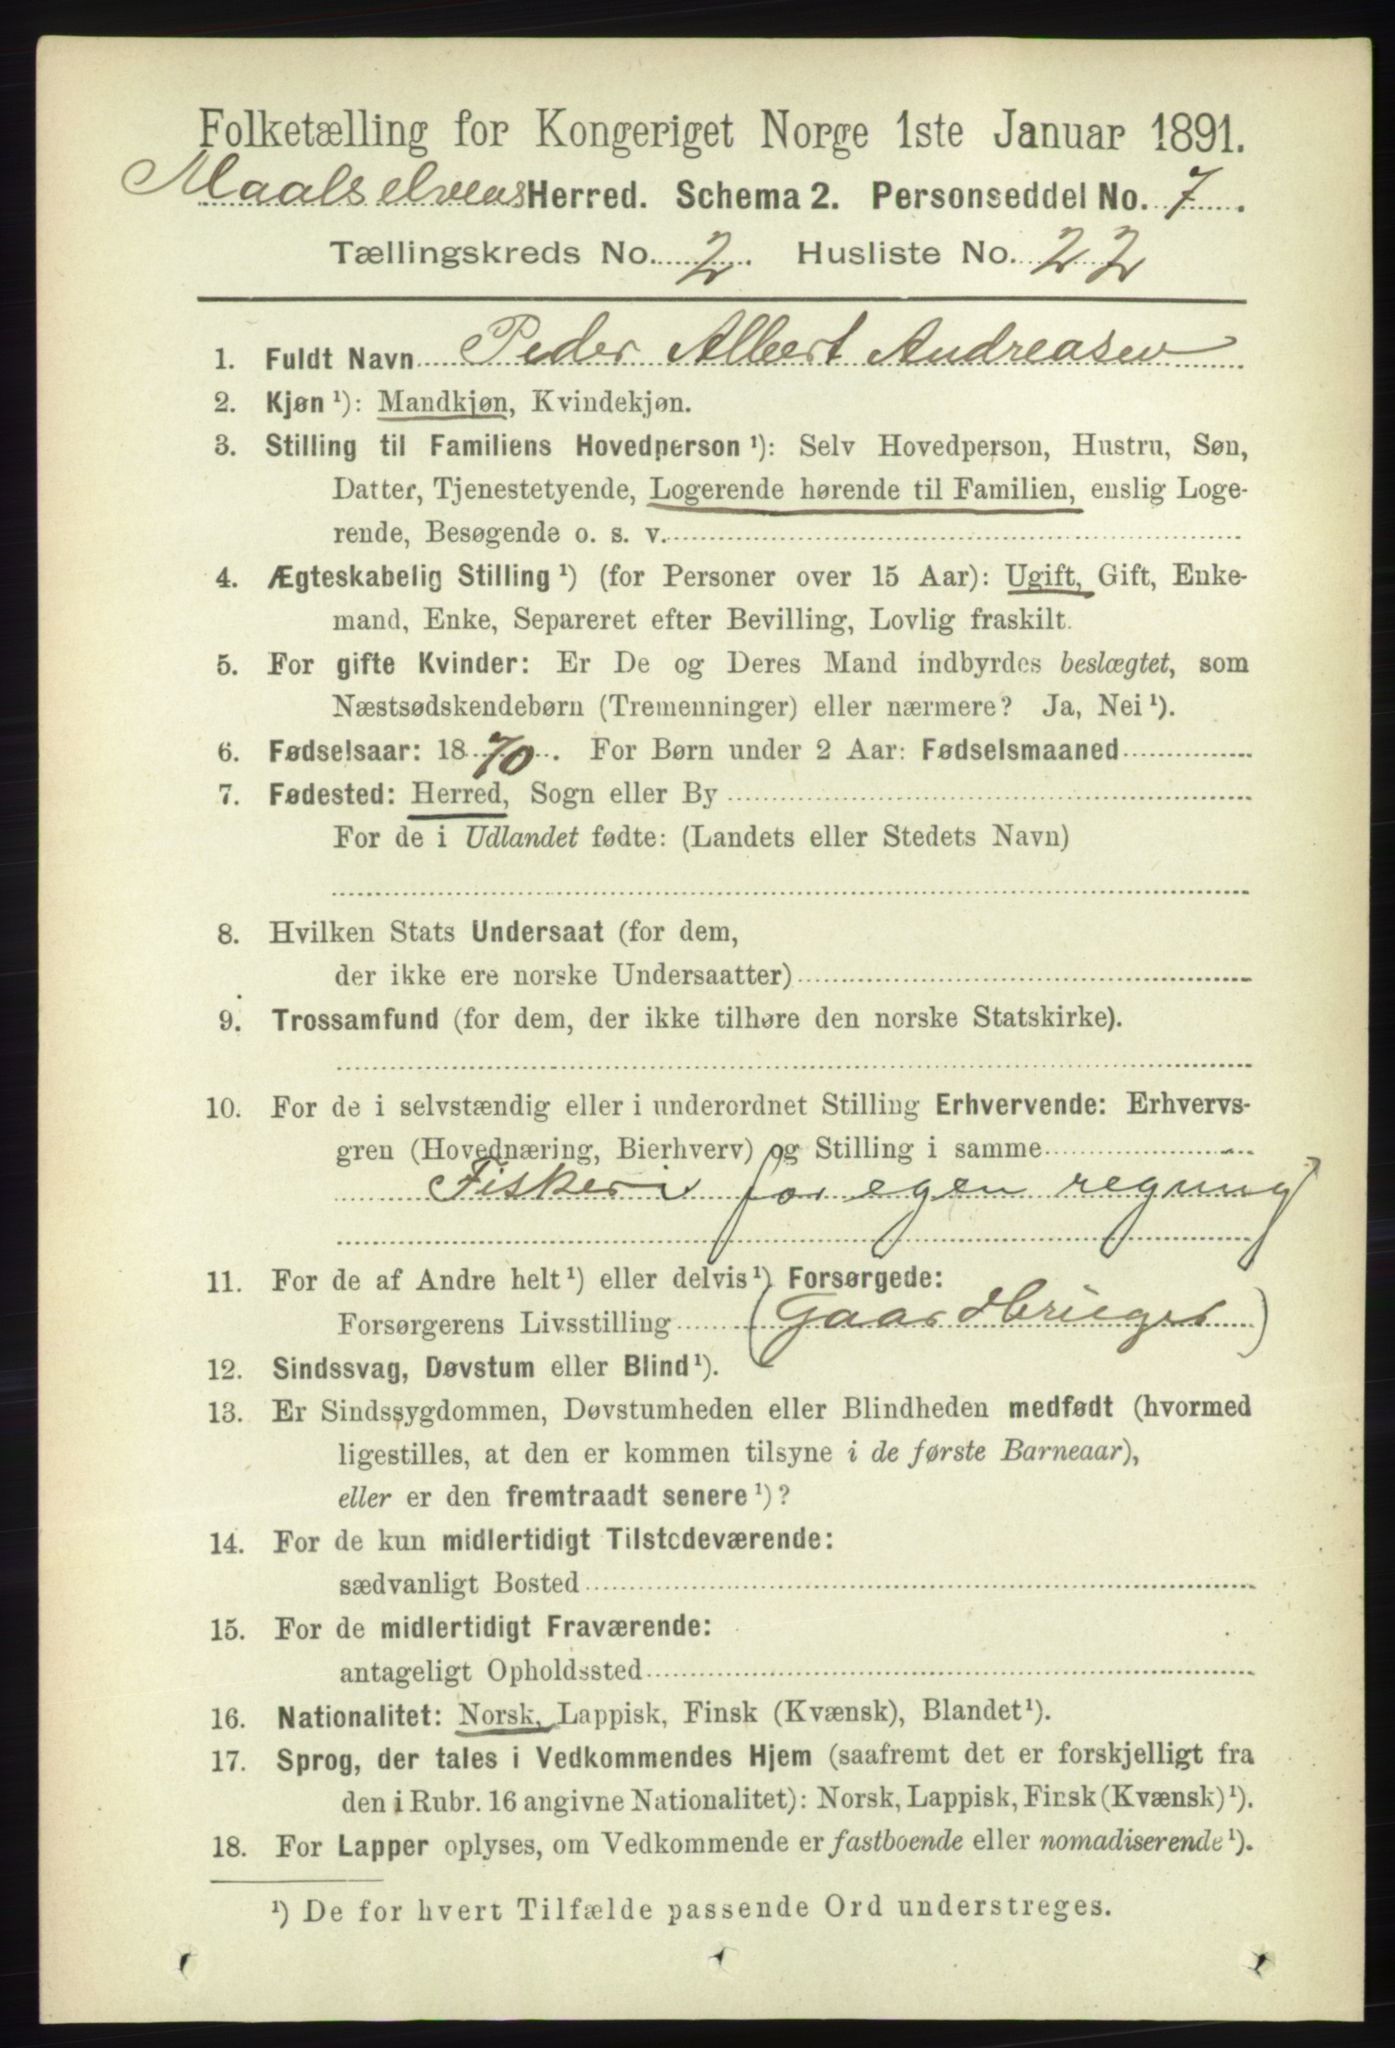 Folketælling for Kongeriget Norge 1ste Januar 1891.
Maalselvens Herred. Schema 2. Personseddel No. 7.
Tællingskreds No. 2. Husliste No. 22
1. Fuldt Navn Peder Albert Andreasen
2. Kjøn ¹): Mandkjøn, Kvindekjøn.
3. Stilling til Familiens Hovedperson ¹): Selv Hovedperson, Hustru, Søn,
Datter, Tjenestetyende, Logerende hørende til Familien, enslig Loge-
rende, Besøgende o. s. v.
4. Ægteskabelig Stilling ¹) (for Personer over 15 Aar): Ugift, Gift, Enke-
mand, Enke, Separeret efter Bevilling, Lovlig fraskilt.
5. For gifte Kvinder: Er De og Deres Mand indbyrdes beslægtet, som
Næstsødskendebørn (Tremenninger) eller nærmere? Ja, Nei ¹).
6. Fødselsaar: 1870. For Børn under 2 Aar: Fødselsmaaned
7. Fødested: Herred, Sogn eller By
For de i Udlandet fødte: (Landets eller Stedets Navn)
8. Hvilken Stats Undersaat (for dem,
der ikke ere norske Undersaatter)
9. Trossamfund (for dem, der ikke tilhøre den norske Statskirke).
10. For de i selvstændig eller i underordnet Stilling Erhvervende: Erhvervs-
gren (Hovednæring, Bierhverv) og Stilling i samme
Fiskeri for egen regning
11. For de af Andre helt ¹) eller delvis ¹) Forsørgede:
Forsørgerens Livsstilling (Gaardbruger)
12. Sindssvag, Døvstum eller Blind ¹).
13. Er Sindssygdommen, Døvstumheden eller Blindheden medfødt (hvormed
ligestilles, at den er kommen tilsyne i de første Barneaar),
eller er den fremtraadt senere ¹)?
14. For de kun midlertidigt Tilstedeværende:
sædvanligt Bosted
15. For de midlertidigt Fraværende:
antageligt Opholdssted
16. Nationalitet: Norsk, Lappisk, Finsk (Kvænsk), Blandet ¹).
17. Sprog, der tales i Vedkommendes Hjem (saafremt det er forskjelligt fra
den i Rubr. 16 angivne Nationalitet): Norsk, Lappisk, Finsk (Kvænsk) ¹).
18. For Lapper oplyses, om Vedkommende er fastboende eller nomadiserende ¹).
¹) De for hvert Tilfælde passende Ord understreges.